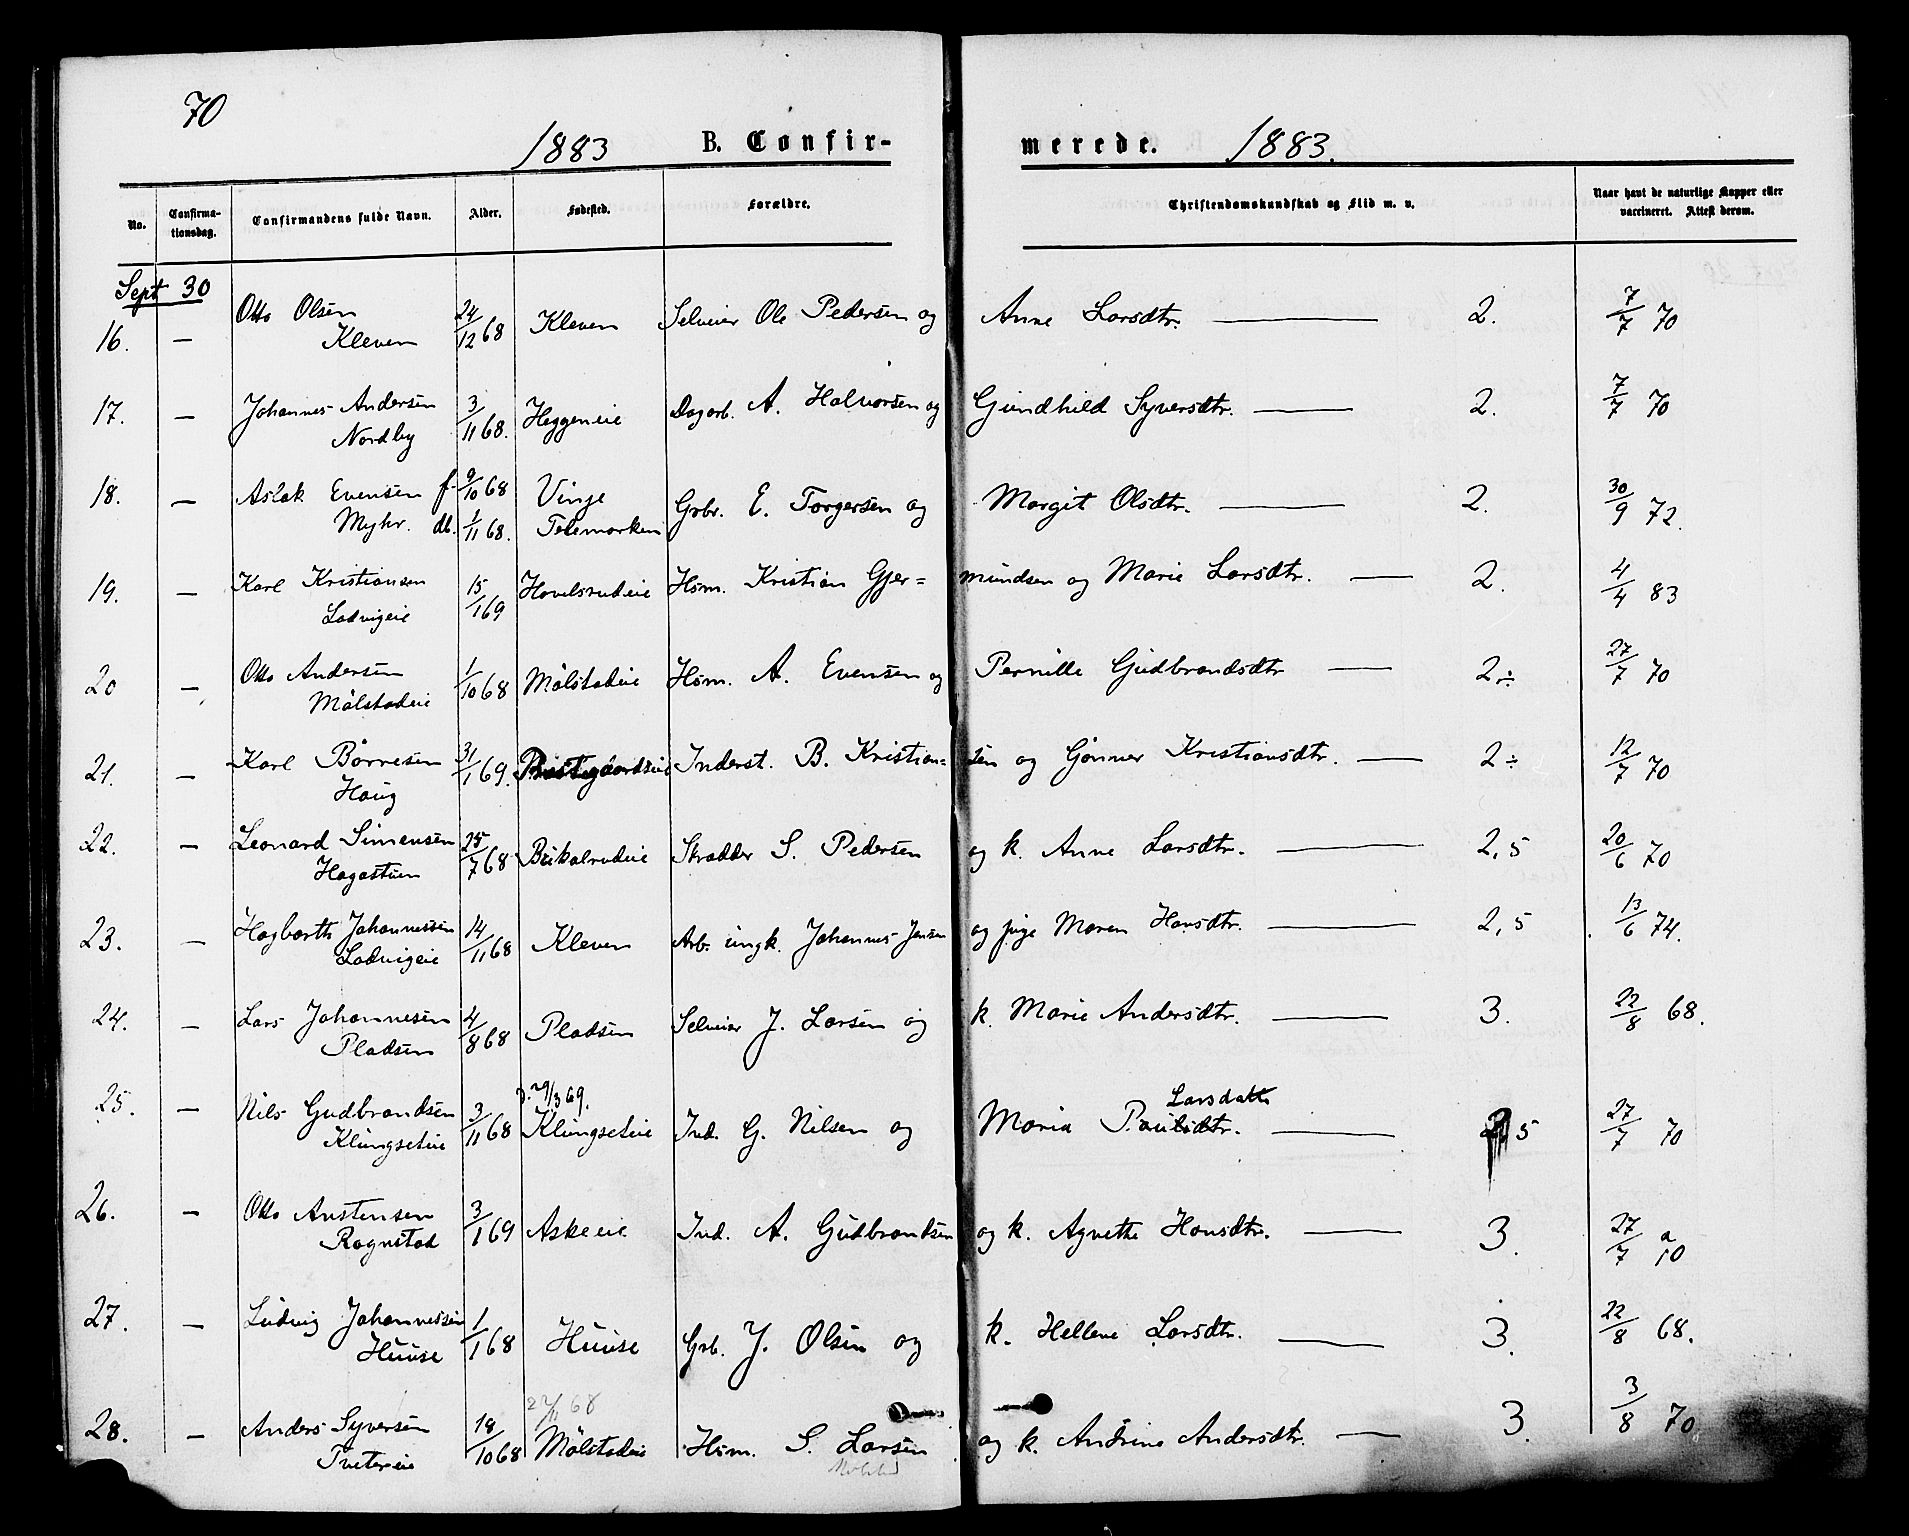 70
1883 B. Confirmerede. 1883.
No. Confirmationsdag. Confirmandens fulde Navn. Alder. Fødested. Forældre. Christendomskundskab og Flid m. v. Naar havt de naturlige Kopper eller vaccineret. Attest derom.
Sept 30
16. — Otto Olsen Kleven 24/12 68 Kleven Selveier Ole Pedersen og Anne Larsdtr. — 2. 7/7 70
17. — Johannes Andersen Nordby 3/11 68. Heggeneie Dagarb. A. Halvorsen og Gundhild Syversdtr. — 2. 7/7 70
18. — Aslak Evensen Myhr. f. 9/10 68 db. 1/11 68. Vinje Telemarken Grbr. E. Torgersen og Margit Olsdtr. — 2. 30/9 72.
19. — Karl Kristiansen Ladvigeie 15/1 69 Hovelsrudeie Hsm. Kristian Gjer=mundsen og Marie Larsdtr. — 2. 4/4 83
20 — Otto Andersen Mølstadeie 1/10 68 Mølstadeie Hsm. A. Evensen og Pernille Gudbrandsdtr — 2÷ 27/7 70
21. — Karl Børresen Haug 31/1 69. Præstegaardseie Inderst. B. Kristian=sen og Gunner Kristiansdtr. — 2÷ 12/7 70
22. — Leonard Simensen Hagastuen 25/7 68 Bikalrudeie Skrædder S. Pedersen og k. Anne Larsdtr. — 2,5 20/6 70
23. — Hagbarth Johannessen Ladvigeie 14/11 68 Kleven Arb. ungk. Johannes Jensen og pige Maren Hansdtr. — 2,5 13/6 74.
24. — Lars Johannesen Pladsen 4/8 68 Pladsen Selveier J. Larsen og k. Marie Andersdtr. — 3. 22/8 68.
25. — Nils Gudbrandsen Klungseteie 3/11 68 29/3 69. Klungseteie Ind. G. Nilsen og Maria Paulsdtr. Larsdatte — 2,5 27/7 70
26. — Otto Austensen Rognstad 3/1 69 Askeeie Ind. A. Gudbrandsen og k. Agnethe Hansdtr. — 3. 27/7 70
27. — Ludvig Johannessen Huuse 1/1 68 Huuse Grb. J. Olsen og k. Hellene Larsdtr. — 3. 22/8 68.
28. — Anders Syversen Tvetereie 18/10 68 22/11 68 Mølstadeie Hsm. S. Larsen og k. Andrine Andersdtr. — 3. 3/8 70